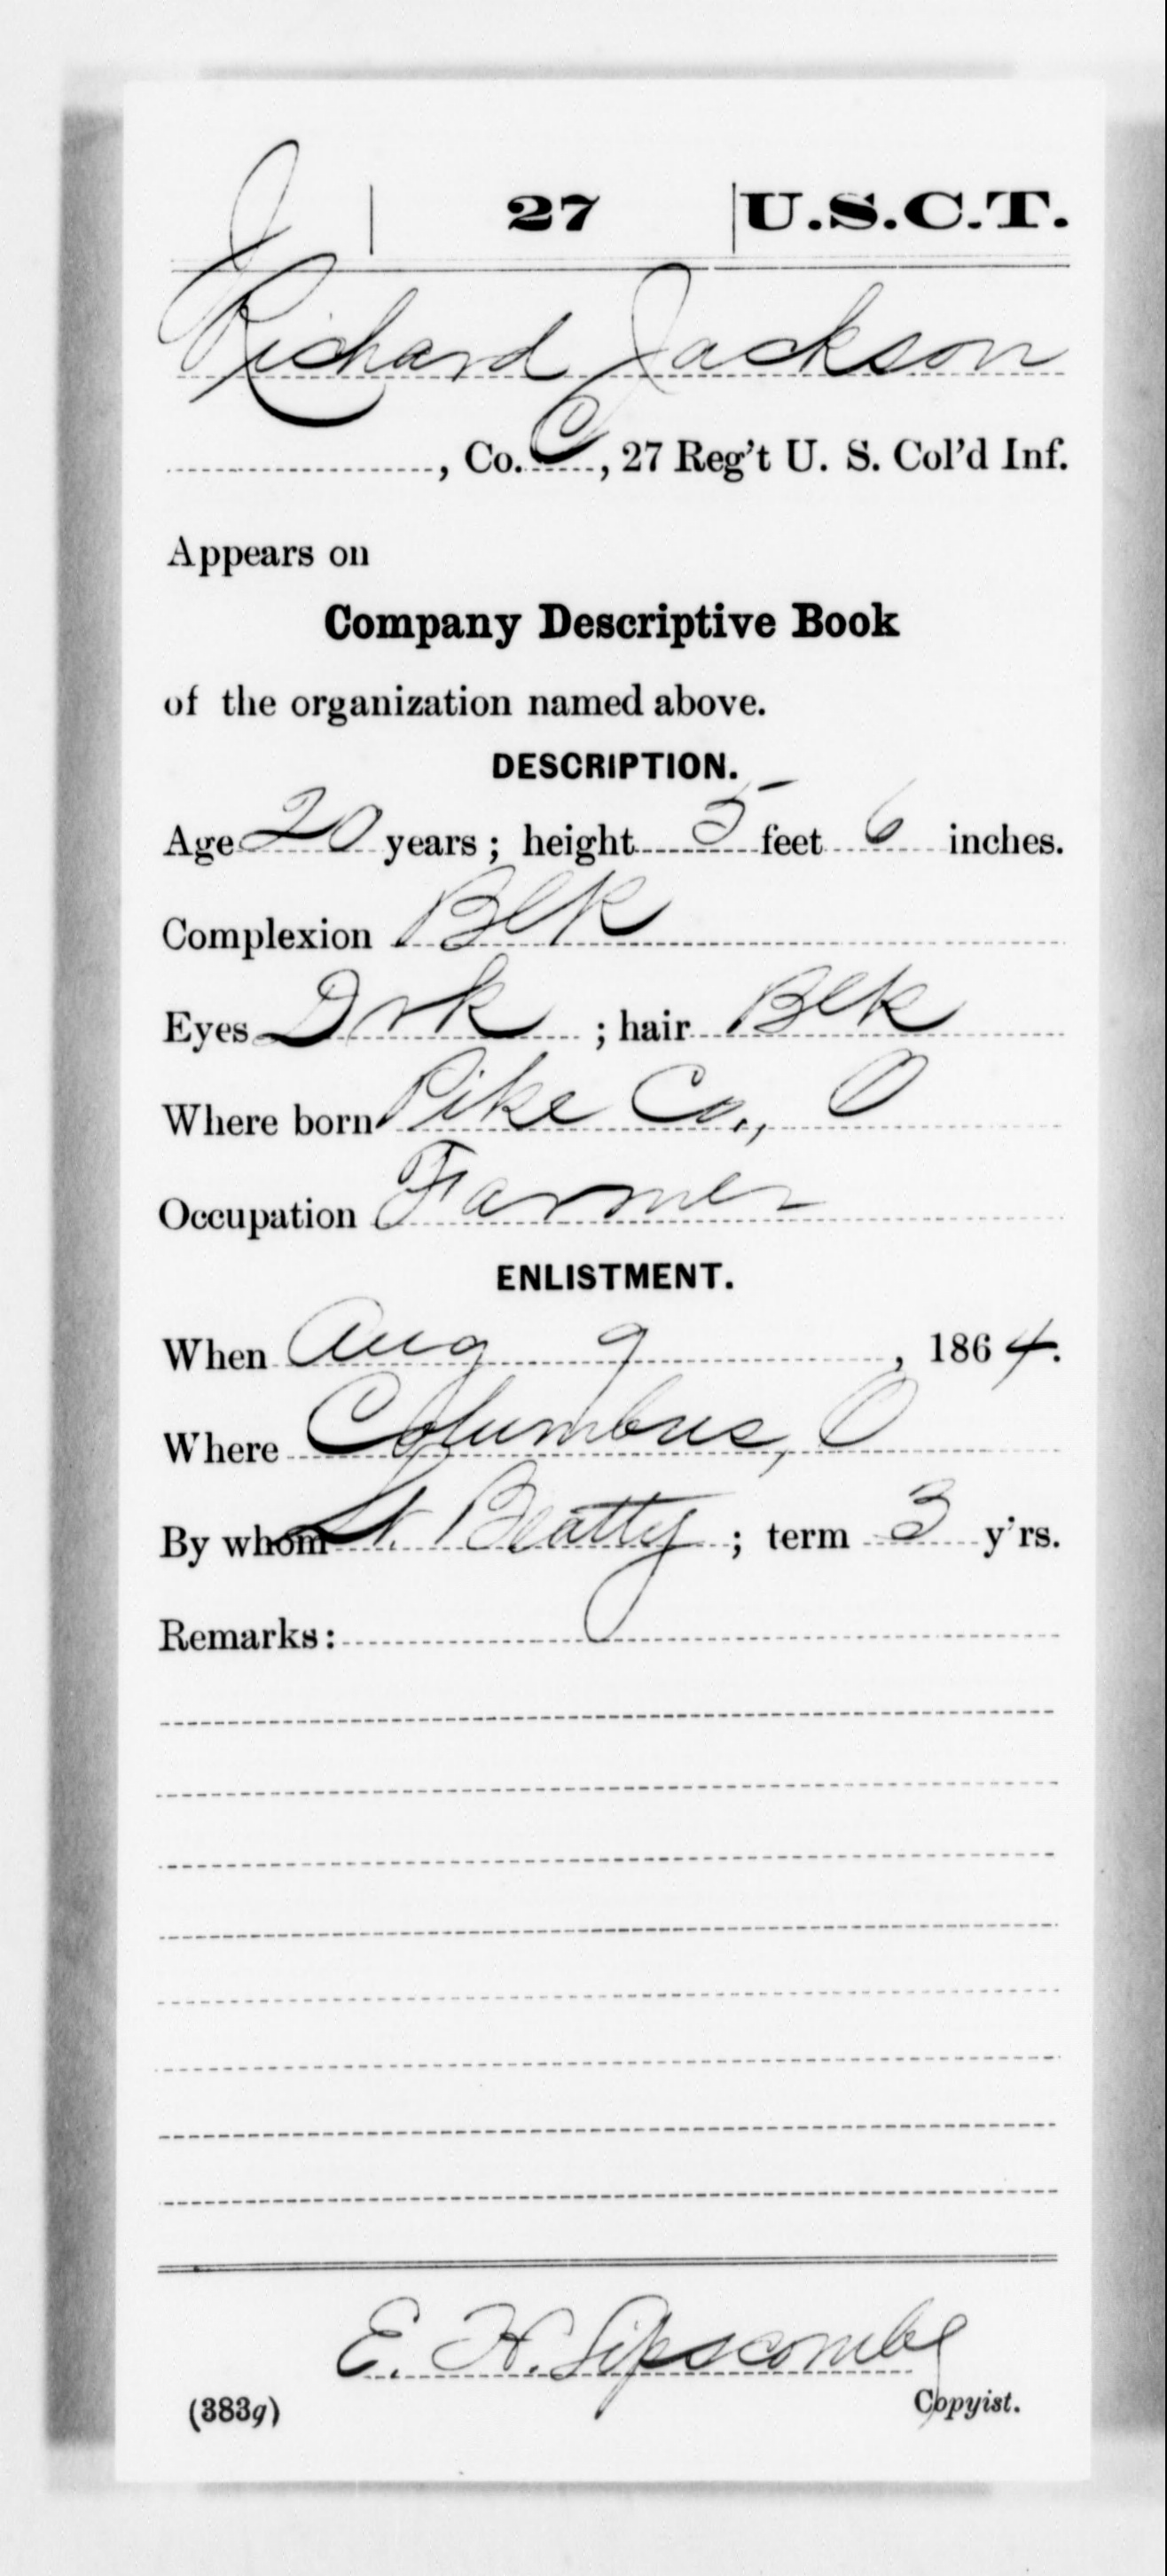 J | 27 | U.S.C.T.
Richard Jackson
, Co. C, 27 Reg't U. S. Col'd Inf.
Appears on
Company Descriptive Book
of the organization named above.
DESCRIPTION.
Age 20 years; height 5 feet 6 inches.
Complexion Blk
Eyes Drk ; hair Blk
Where born Pike Co., O
Occupation Farmer
ENLISTMENT.
When Aug 9, 1864.
Where Columbus, O
By whom Lt. Beatty; term 3 y'rs.
Remarks:
E. H. Lipscombe
(383g) Copyist.